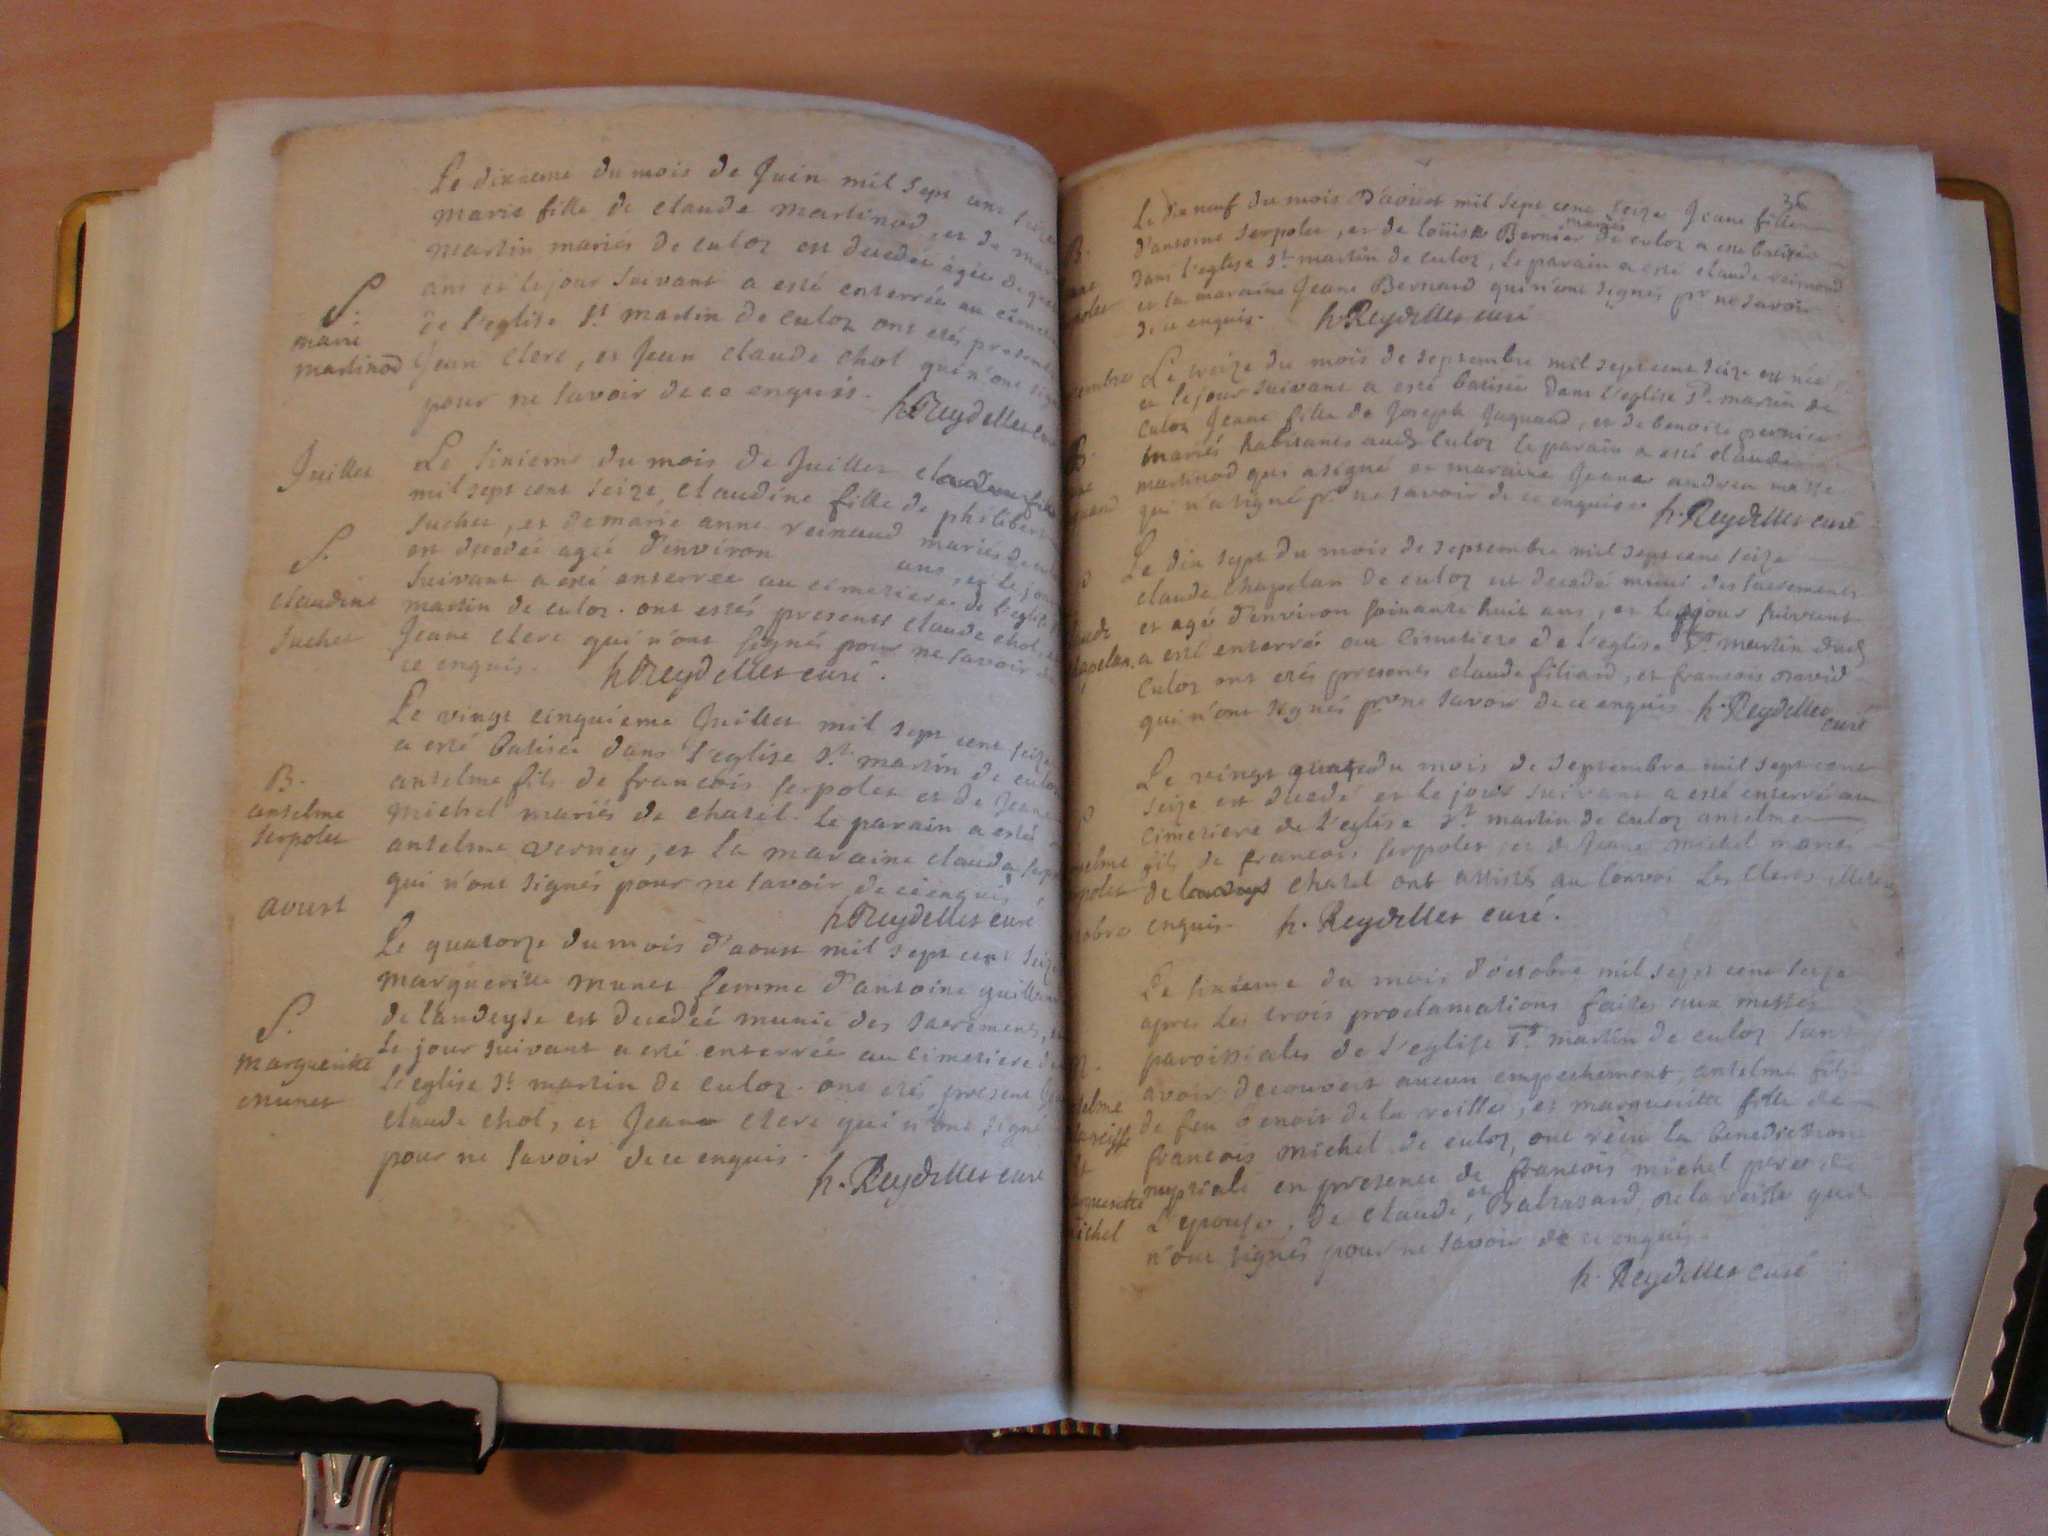 Le dixieme du mois de Juin mil sept cent seize
marie fille de claude martinod, et de
martin mariés de culoz est decedée agée de
S.
ans et le jour suivant a esté enterrée au
marie
de l'eglise St martin de culoz ont etés presents
martinod
Jean clerc, et Jean claude chol qui n'ont signé
pour ne savoir de ce enquis.
h Reydellet curé
Juillet
Le sixieme du mois de Juillet
mil sept cent seize, claudine fille de philibert
suchet, et de marie anne reinaud mariés de
S.
est decedée agée d'environ ans, et le jour
suivant a esté enterrée au cimetiere de l'eglise
claudine
martin de culoz. ont estés presents claude chol,
suchet
Jeane clerc qui n'ont signés pour ne savoir
ce enquis. h Reydellet curé.
Le vingt cinquieme Juillet mil sept cent seize
a esté batisée dans l'eglise St. martin de culoz
B.
anselme fils de francois serpolet et de Jeane
anselme
michel mariés de chatel. le parain a estés
serpolet
anselme verney, et la maraine clauda
qui n'ont signés pour ne savoir de ce enquis
avust
h Reydellet curé
Le quatorze du mois d'aoust mil sept cent seize
margueritte munet femme d'antoine
S.
de landeyse est decedeé munie des sacrements,
margueritte
Le jour suivant a esté enterrée au cimetiere de
munet
l'eglise St martin de culoz. ont etés present
claude chol, et Jeane clerc qui n'ont signé
pour ne savoir de ce enquis.
h. Reydellet curé
36
Le dix neuf du mois d'aoust mil sept cent seize Jeane fille
mariés
B.
d'antoine serpolet, et de loüise Bernier de culoz a este batisée
dans l'eglise St. martin de culoz, le parain a esté claude reimond
et la maraine Jeane Bernard qui n'ont signés pr ne savoir
de ce enquis. h Reydellet curé
Le treize du mois de septembre mil sept cent seize est née
et le jour suivant a esté batisée dans l'eglise St. martin de
culoz Jeane fille de Joseph Juguand, et de benoite pernier
B.
mariés habitants aud culoz le parain a esté claude
martinod qui a signé et maraine Jeane andrea
qui n'a signé pr ne savoir de ce enquise. h. Reydellet curé
Le dix sept du mois de septembre mil sept cent seize
claude chapelan de culoz est decedé muni des sacrements
et agé d'environ soixante huit ans, et le jour suivant
a esté enterrés au cimetiere de l'eglise St. martin dud
culoz ont etés presents claude filiard, et francois david
qui n'ont signés pr ne savoir de ce enquis h. Reydellet
curé
Le vingt du mois de septembre mil sept cent
seize est decedé et le jour suivant a esté enterré au
cimetiere de l'eglise St martin de culoz anselme
fils de francois serpolet, et de Jeane michel mariés
de chatel ont assistés au convoi les clercs
enquis. h. Reydellet curé.
Le huitieme du mois d'octobre mil sept cent seize
apres les trois proclamations faites aux messes
paroissiales de l'eglise St. martin de culoz sans
avoir decouvert aucun empechement, anselme fils
de feu benoit de la veisse, et marguerite fille de
francois michel de culoz, ont recu la benediction
nuptiale en presence de francois michel pere de
marguerite
michel
L'epouse, de claude, et Baltasard de la veisse qui
n'ont signés pour ne savoir de ce enquis.
h. Reydellet curé